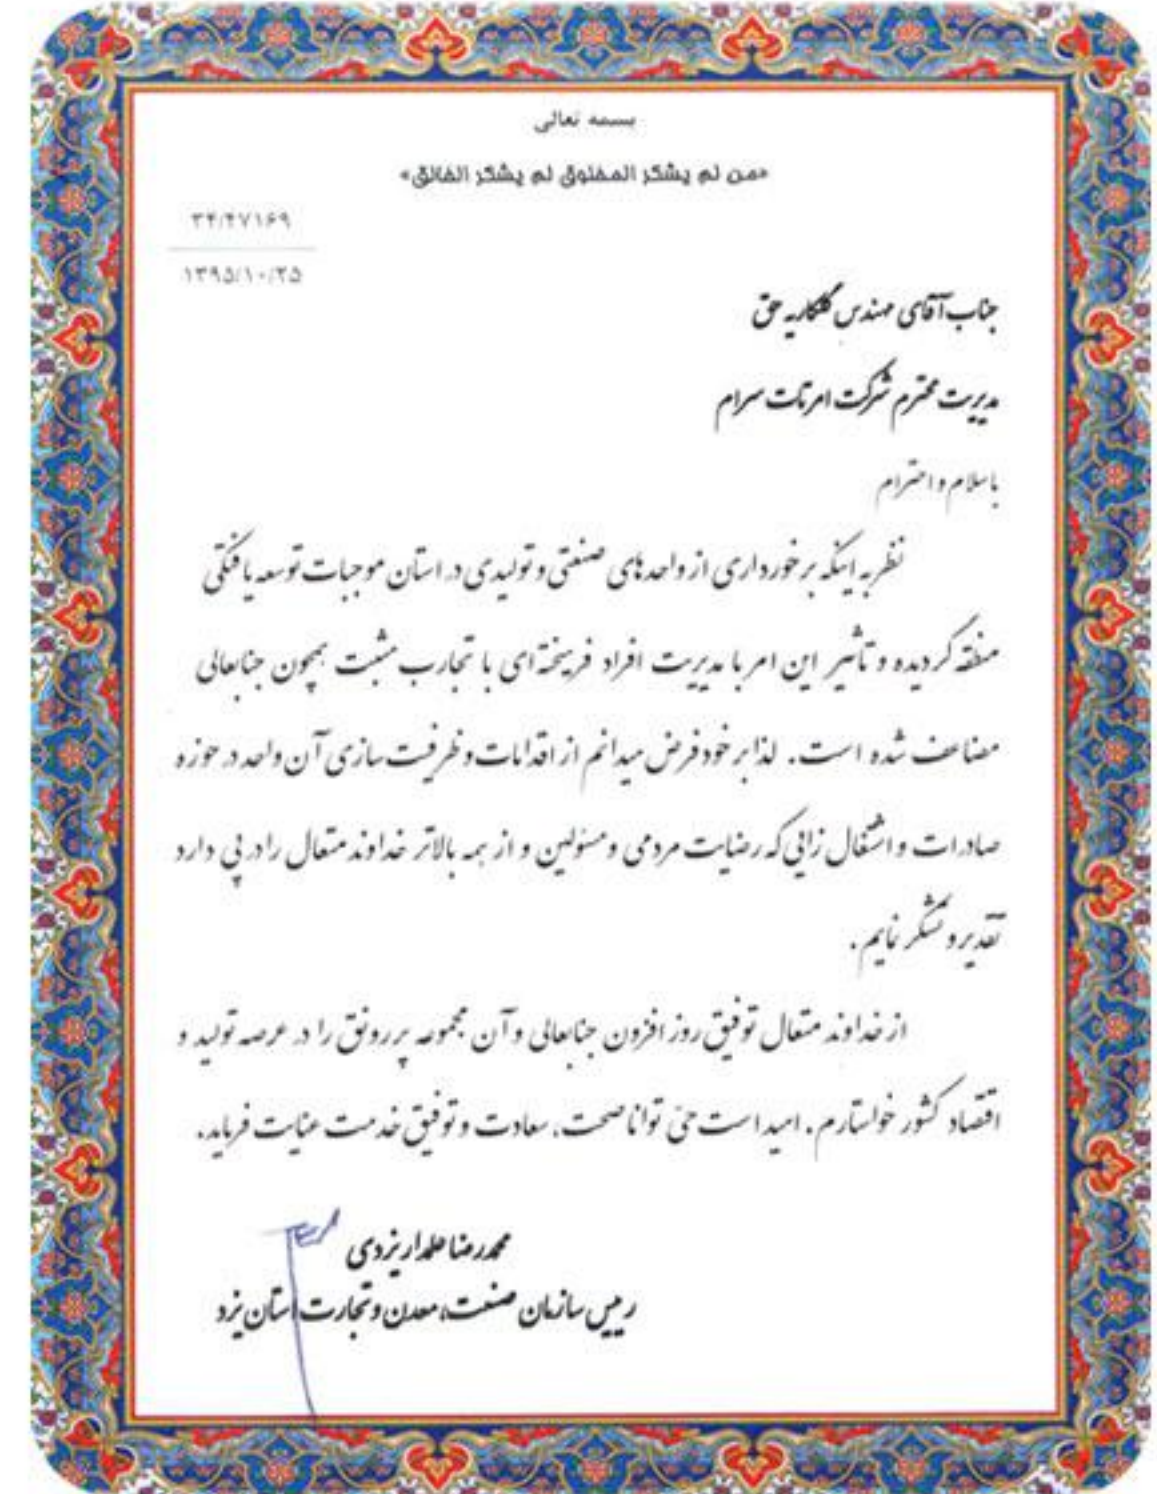 بسمه تعالی
«من لم یشکر المخلوق لم یشکر الخالق»
۳۴/۴۷۱۶۹
۱۳۹۵/۱۰/۲۵
جناب آقای مهندس گلکاریه حق
مدیریت محترم شرکت امرتات سرام
باسلام و احترام
نظر به اینکه برخورداری از واحدهای صنعتی و تولیدی در استان موجبات توسعه یافتگی
منطقه گردیده و تأثیر این امر با مدیریت افراد فرهیخته ای با تجارب مثبت همچون جنابعالی
مضاعف شده است. لذا بر خود فرض میدانم از اقدامات و ظرفیت سازی آن واحد در حوزه
صادرات و اشتغال زائی که رضایت مردمی و مسئولین و از همه بالاتر خداوند متعال را در پی دارد
تقدیر و تشکر نمایم.
از خداوند متعال توفیق روز افزون جنابعالی و آن مجموعه پر رونق را در عرصه تولید و
اقتصاد کشور خواستارم. امید است حی توانا صحت، سعادت و توفیق خدمت عنایت فرماید.
محمدرضا علمدار یزدی
رییس سازمان صنعت، معدن و تجارت استان یزد